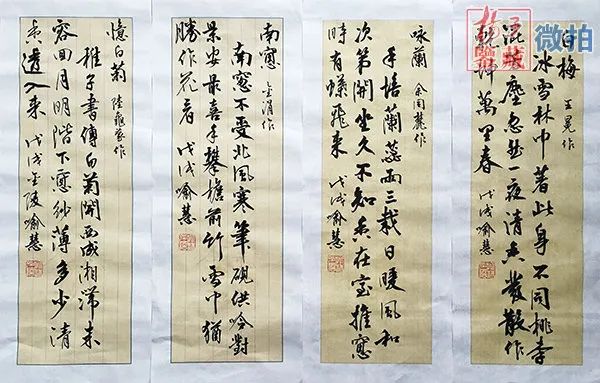 白梅 王冕作
冰雪林中著此身不同桃李
混芳塵忽然一夜清香發散作
乾坤萬里春 戊戌喻慧
咏蘭 余同麓作
手培蘭蕊兩三栽日暖風和
次第開坐久不知香在室推窓
時有蝶飛來 戊戌喻慧
南窓 金涓作
南窓不受北風寒筆硯供吟對
景安最喜手攀檐前竹雪中猶
勝作花看 戊戌喻慧
憶白菊 陸龜蒙作
稚子書傳白菊開西成湘滯未
容回月明階下窓紗薄多少清
香透入來 戊戌金陵喻慧
微拍